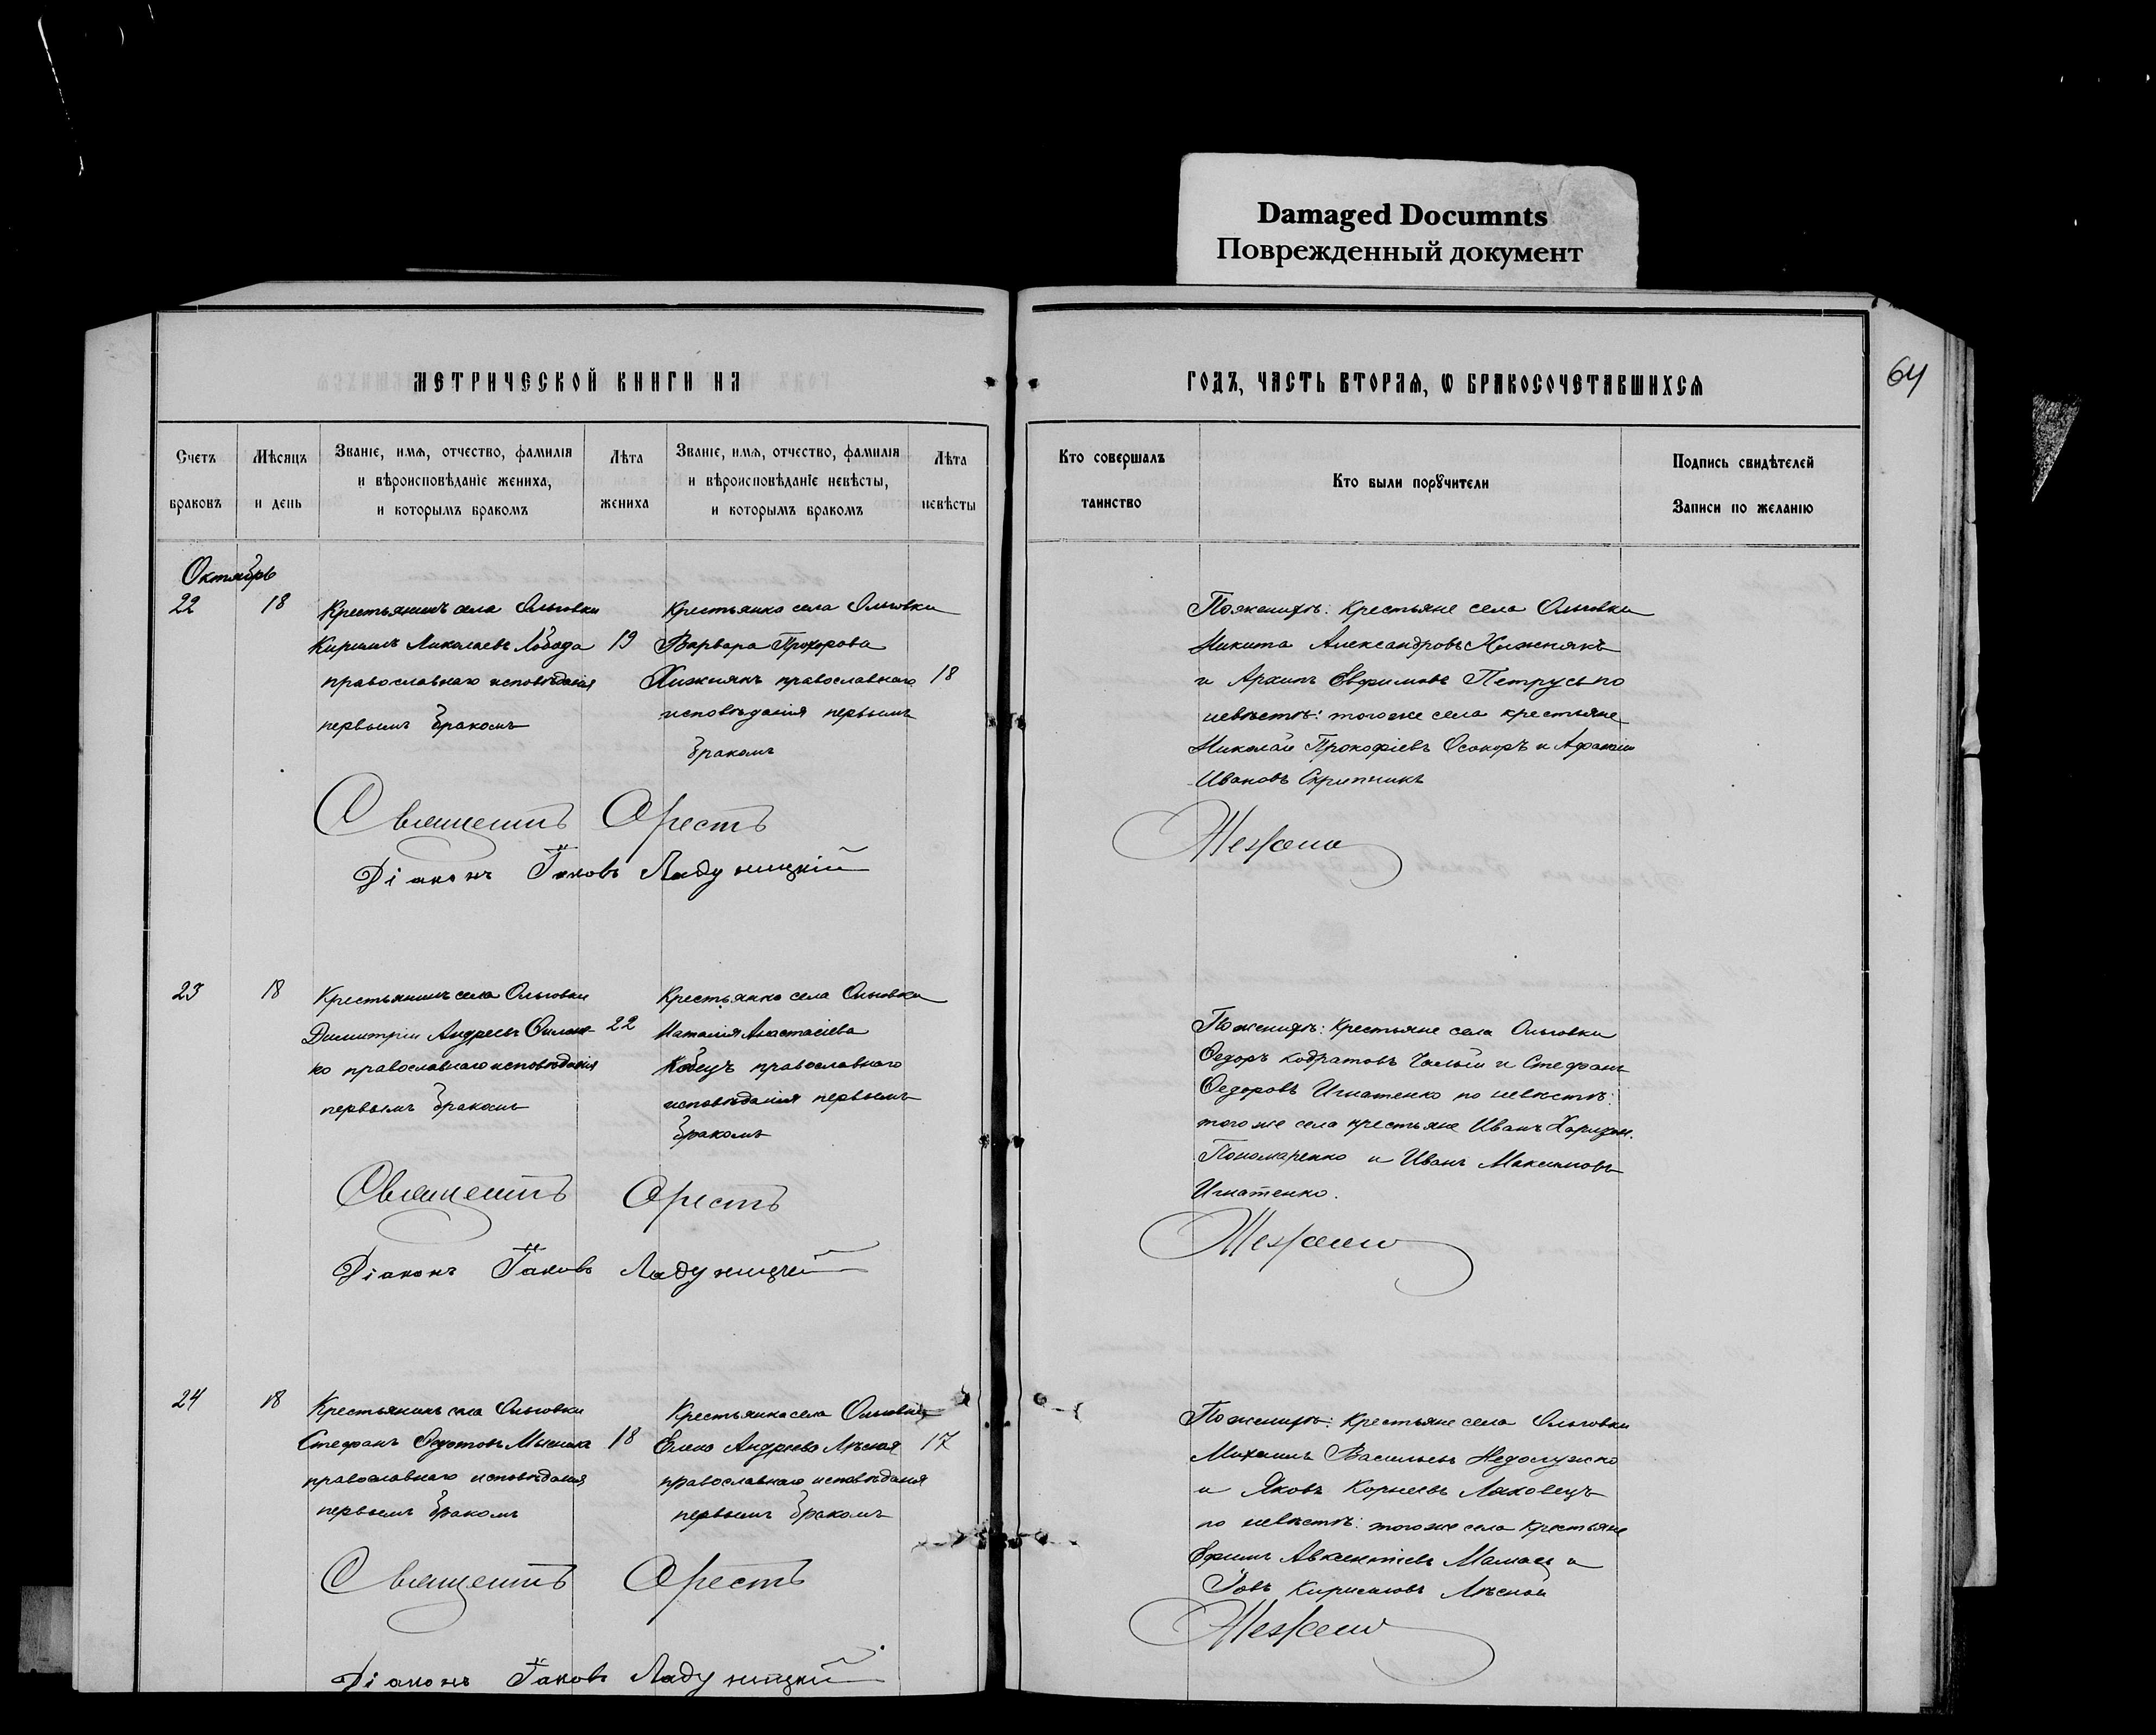 Damaged Documnts
Поврежденный документ
64
МЕТРИЧЕСКОЙ КНИГИ НА
ГОДЪ, ЧАСТЬ ВТОРАЯ, Ѡ БРАКОСОЧЕТАВШИХСЯ
Счетъ браковъ
Мѣсяцъ и день
Званіе, имя, отчество, фамилія
и вѣроисповѣданіе жениха,
и которымъ бракомъ
Лѣта жениха
Званіе, имя, отчество, фамилія
и вѣроисповѣданіе невѣсты,
и которымъ бракомъ
Лѣта невѣсты
Кто совершалъ таинство
Кто были порꙋчители
Подпись свидѣтелей
Записи по желанію
Октябрь
22
18
Крестьянинъ села Ольговки
Кириллъ Николаевъ Лобода
православнаго исповѣданія
первымъ бракомъ
19
Крестьянка села Ольговки
Варвара Прохорова
Хижнякъ православнаго
исповѣданія первымъ
бракомъ
18
По женихѣ: Крестьяне села Ольговки
Никита Александровъ Хижнякъ
и Архипъ Евфимовъ Петрусь по
невѣстѣ: того же села крестьяне
Николай Прокофіевъ Осокоръ и Афанасій
Ивановъ Скрипникъ
Священникъ Орестъ
Діаконъ Іаковъ Ладужицкій
23
18
Крестьянинъ села Ольговки
Димитрій Андреевъ
ко православнаго исповѣданія
первымъ бракомъ
22
Крестьянка села Ольговки
Наталія Анастасіева
Кобецъ православнаго
исповѣданія первымъ
бракомъ
По женихѣ: Крестьяне села Ольговки
Ѳедоръ Кодратовъ Чалый и Стефанъ
Ѳедоровъ Игнатенко по невѣстѣ:
того же села крестьяне Иванъ
Пономаренко и Иванъ Максимовъ
Игнатенко.
Священникъ Орестъ
Діаконъ Іаковъ Ладужицкій
24
18
Крестьянинъ села Ольговки
Стефанъ
православнаго исповѣданія
первымъ бракомъ
18
Крестьянка села Ольговки
Елена Андреева Лѣсная
православнаго исповѣданія
первымъ бракомъ
17
По женихѣ: Крестьяне села Ольговки
Михаилъ Васильевъ Недолужко
и Яковъ Корнеевъ Лаховецъ
по невѣстѣ: того же села крестьяне
Ефимъ Авксентіевъ и
Іовъ Кирилловъ Лѣсной
Священникъ Орестъ
Діаконъ Іаковъ Ладужицкій